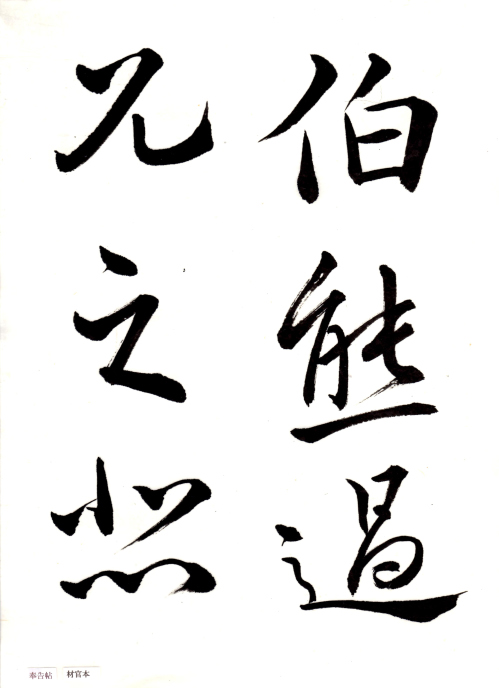 伯熊過
兄之悲
奉告帖
材官本